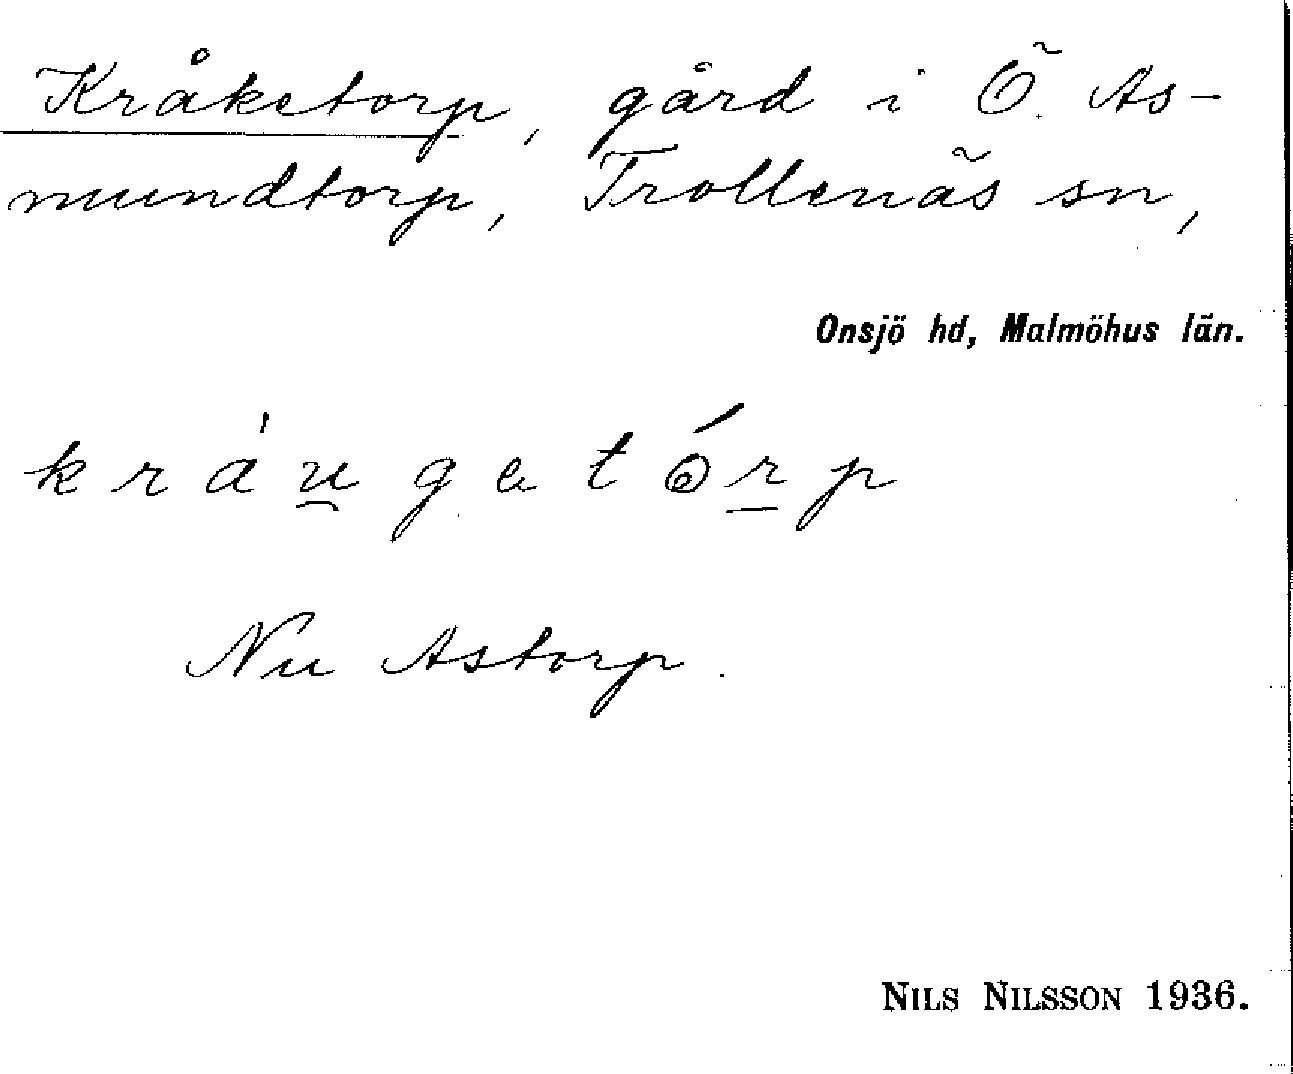 Kråketorp, gård i Ö. As-
mundtorp, Trollenäs sn,
Onsjö hd, Malmöhus län.
kràu̯getórp
Nu Astorp.
NILS NILSSON 1936.